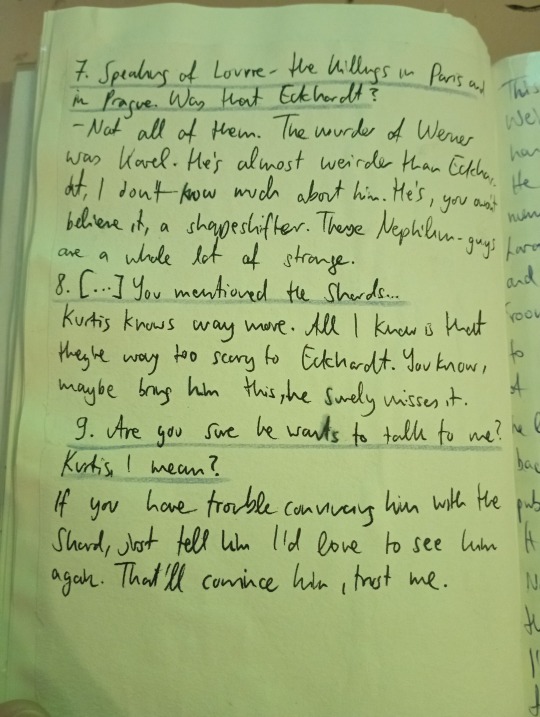 7. Speaking of Louvre - the killings in Paris and
in Prague. Was that Eckhardt?
- Not all of them. The murder of Werner
was Karel. He's almost weirder than Eckha
dt, I don't know much about him. He's, you won't
believe it, a shapeshifter. These Nephilim-guys
are a whole lot of strange.
8. [...] You mentioned the Shards...
Kurtis knows way more. All I know is that
they're way too scary to Eckhardt. You know,
maybe bring him this, he surely misses it.
9. Are you sure he wants to talk to me?
Kurtis, I mean?
If you have trouble convincing him with the
Shard, just tell him I'd love to see him
again. That'll convince him, trust me.
This
We
han
He
and
to
A
bac
pub
I'